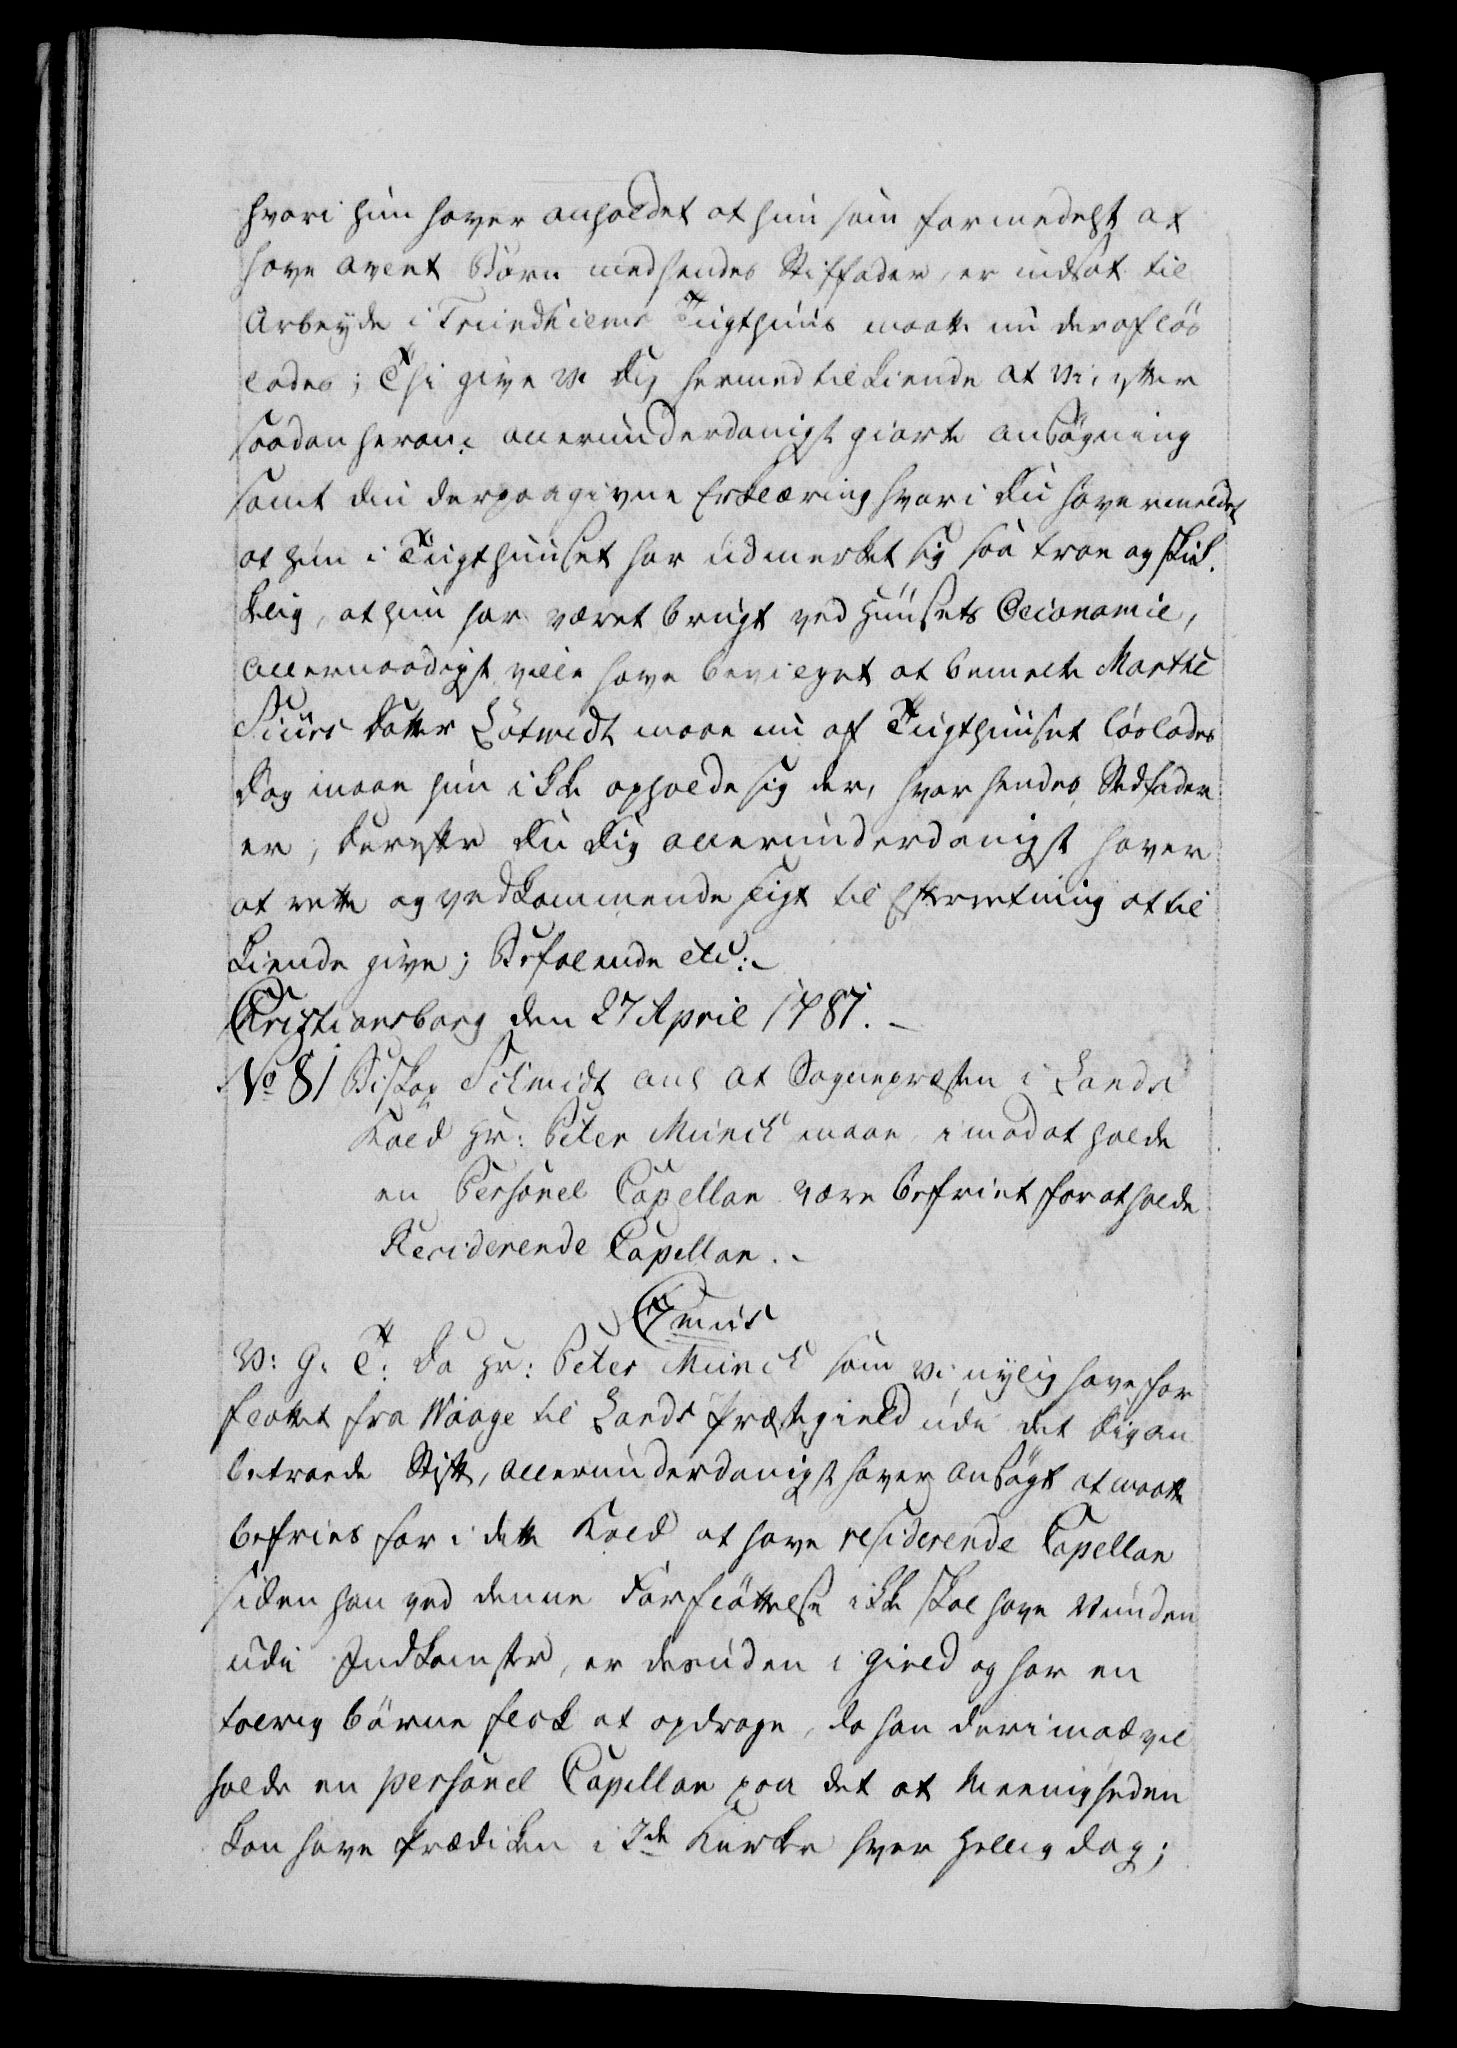 hvori hun haver anholdet at hun som formedelst at
have avlet Børn med hendes Stiffader, er indsat til
Arbeyde i Trundhiems Tugthuus maatte nu deraf løs
lades; Thi give Vi dig hermed tilkiende at Vi, efter
saadan herom allerunderdanigst giorte Ansøgning
samt din derpaa givne Erklæring hvori Du have meldet
at hun i Tugthuuset har udmerket sig saa troe og skik¬
kelig, at hun har været brugt ved Huusets Oeconomie,
allernaadigst ville have bevilget at bemelte Marthe
Siurs Datter maae nu af Tugthuuset løslades
dog maae hun ikke opholde sig der, hvor hendes Stedfader
er; Derefter Du dig allerunderdanigst haver
at rette og vedkommende sligt til Efterretning at til
kiende give; Befalende etc:
Christiansborg den 27 April 1781.
No 81 Biskop Schmidt anl at Sognepræsten i Lands
Kald Hr: Peter Munch maae, imod at holde
en Personel Capellan være befriet for at holde
Residerende Capellan.
C7mus
V: G: T: Da Hr: Peter Munch som Vi nylig have for
fløttet fra Waage til Lands Præstegield udi det dig an
betroede Stift, allerunderdanigst haver ansøgt at maatte
befries for i dette Kald at have residerende Capellan
siden han ved denne Forfløttelse ikke skal have Vunden
udi Indkomster, er desuden i Gield og har en
talrig børne flok at opdrage, da han derimod vil
holde en personel Capellan paa det at Meenigheden
kan have Prædiken i 2de Kirker hver Hellig dag;